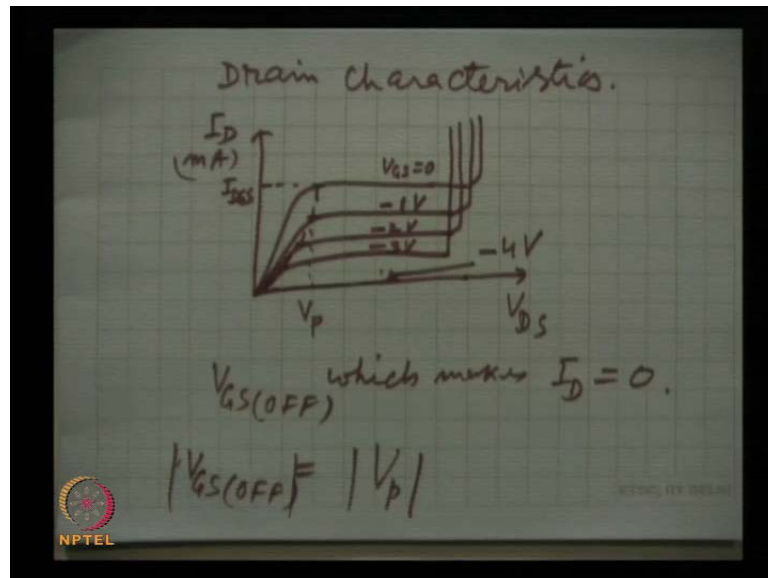 Drain Characteristics.
I_D
(mA)
I_DSS
V_GS=0
-1V
-2V
-3V
-4V
V_p
V_DS
V_GS(OFF) which makes I_D = 0.
|V_GS(OFF)| = |V_p|
NPTEL
ETSC, IIT DELHI